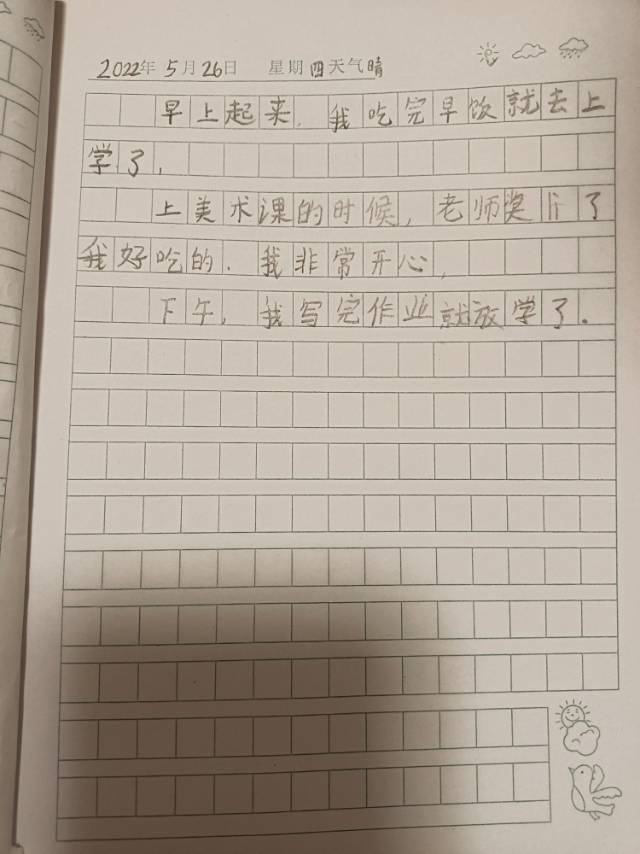 2022年 5月 26日 星期四天气晴
早上起来.我吃完早饭就去上
学了,
上美术课的时候,老师奖li了
我好吃的.我非常开心,
下午,我写完作业就放学了.